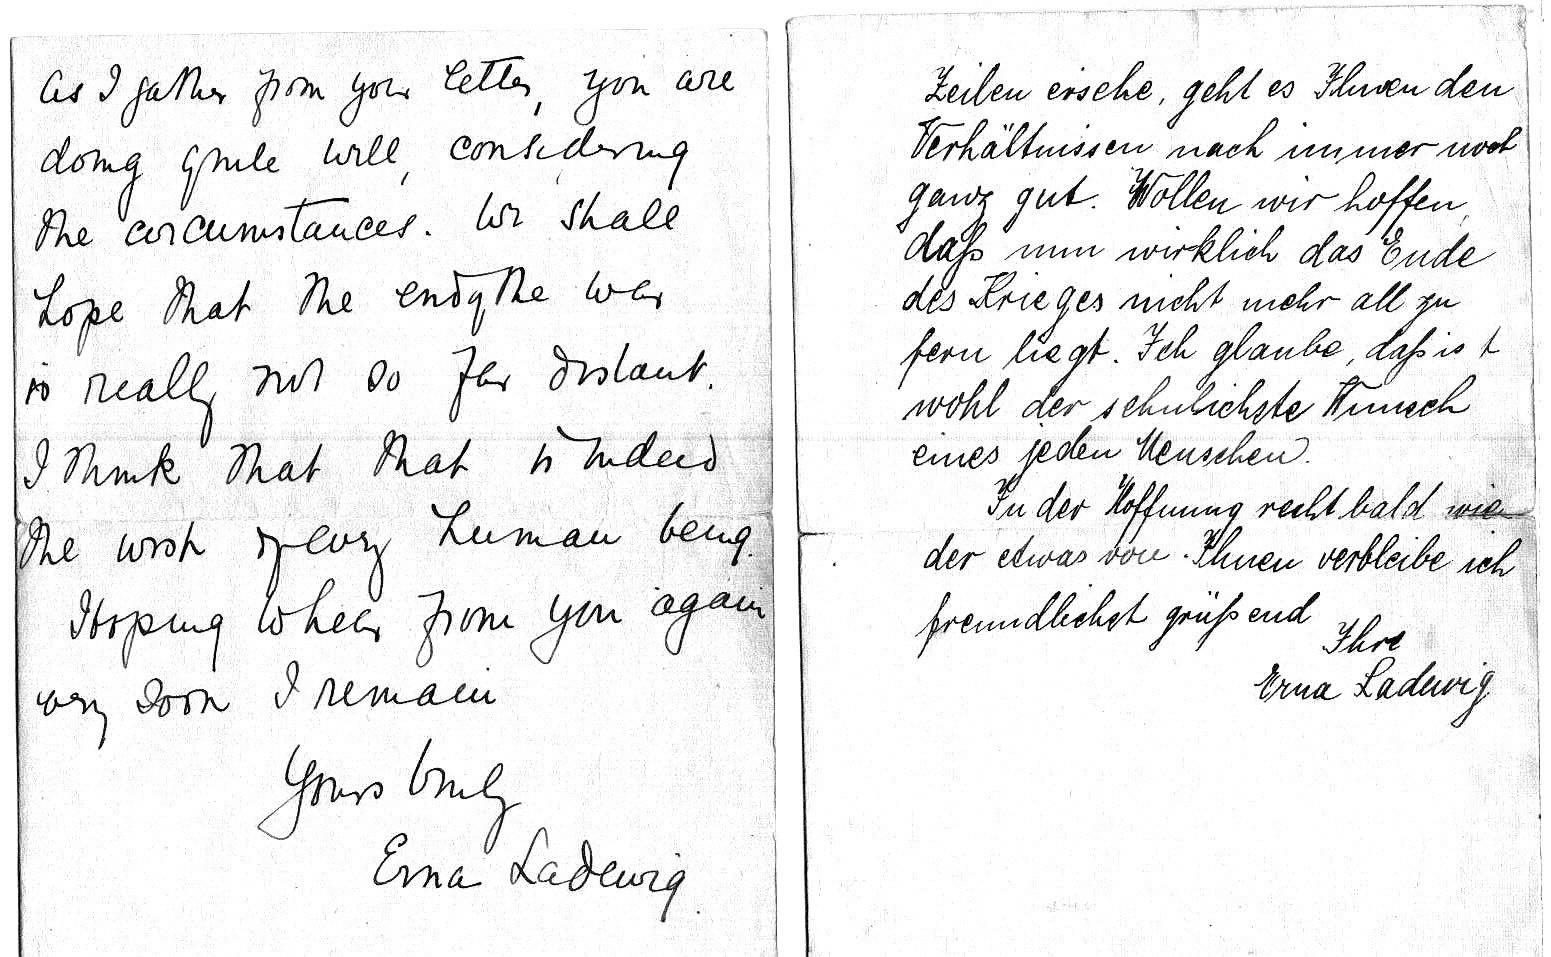 As I gather from your letter, you are
doing quite well, considering
the circumstances. We shall
hope that the end of the war
is really not so far distant.
I think that that is indeed
the wish of every human being.
Hoping to hear from you again
very soon I remain
Yours truly
Erna Ladewig.
Zeilen ersehe, geht es Ihnen den
Verhältnissen nach immer noch
ganz gut. Wollen wir hoffen,
daß nun wirklich das Ende
des Krieges nicht mehr all zu
fern liegt. Ich glaube, daß ist
wohl der sehnlichste Wunsch
eines jeden Menschen.
In der Hoffnung recht bald wie
der etwas von Ihnen verbleibe ich
freundlichst grüßend
Ihre
Erna Ladewig